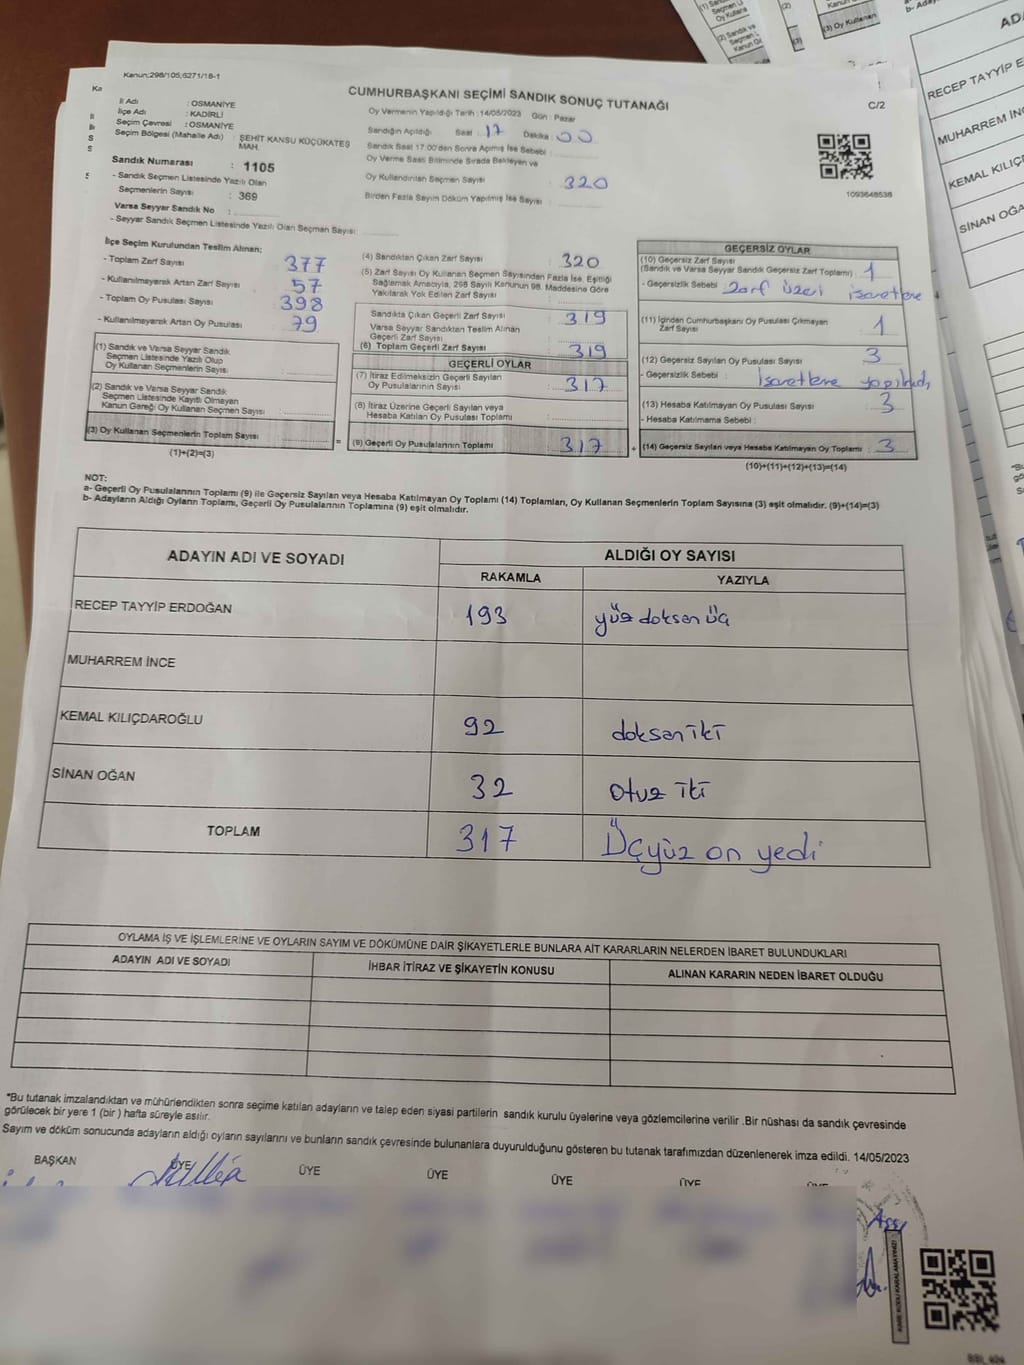 Kanun:298/105,6271/18-1
CUMHURBAŞKANI SEÇİMİ SANDIK SONUÇ TUTANAĞI
C/2
İl Adı : OSMANİYE
İlçe Adı : KADİRLİ
Seçim Çevresi : OSMANİYE
Seçim Bölgesi (Mahalle Adı) : ŞEHİT KANSU KÜÇÜKATEŞ MAH.
Sandık Numarası : 1105
- Sandık Seçmen Listesinde Yazılı Olan Seçmenlerin Sayısı : 369
Varsa Seyyar Sandık No :
- Seyyar Sandık Seçmen Listesinde Yazılı Olan Seçmen Sayısı:
Oy Vermenin Yapıldığı Tarih : 14/05/2023 Gün : Pazar
Sandığın Açıldığı Saat : 17 Dakika : 00
Sandık Saat 17.00'den Sonra Açılmış İse Sebebi :
Oy Verme Saati Bitiminde Sırada Bekleyen ve
Oy Kullandırılan Seçmen Sayısı : 320
Birden Fazla Sayım Döküm Yapılmış İse Sayısı :
1093648536
İlçe Seçim Kurulundan Teslim Alınan;
- Toplam Zarf Sayısı : 377
- Kullanılmayarak Artan Zarf Sayısı : 57
- Toplam Oy Pusulası Sayısı : 398
- Kullanılmayarak Artan Oy Pusulası : 79
(1) Sandık ve Varsa Seyyar Sandık
Seçmen Listesinde Yazılı Olup
Oy Kullanan Seçmenlerin Sayısı :
(2) Sandık ve Varsa Seyyar Sandık
Seçmen Listesinde Kayıtlı Olmayan
Kanun Gereği Oy Kullanan Seçmen Sayısı :
(3) Oy Kullanan Seçmenlerin Toplam Sayısı :
(1)+(2)=(3)
(4) Sandıktan Çıkan Zarf Sayısı : 320
(5) Zarf Sayısı Oy Kullanan Seçmen Sayısından Fazla İse, Eşitliği
Sağlamak Amacıyla, 298 Sayılı Kanunun 98. Maddesine Göre
Yakılarak Yok Edilen Zarf Sayısı :
Sandıkta Çıkan Geçerli Zarf Sayısı : 319
Varsa Seyyar Sandıktan Teslim Alınan
Geçerli Zarf Sayısı :
(6) Toplam Geçerli Zarf Sayısı : 319
GEÇERLİ OYLAR
(7) İtiraz Edilmeksizin Geçerli Sayılan
Oy Pusulalarının Sayısı : 317
(8) İtiraz Üzerine Geçerli Sayılan veya
Hesaba Katılan Oy Pusulası Toplamı :
= (9) Geçerli Oy Pusulalarının Toplamı : 317
GEÇERSİZ OYLAR
(10) Geçersiz Zarf Sayısı
(Sandık ve Varsa Seyyar Sandık Geçersiz Zarf Toplamı) : 1
- Geçersizlik Sebebi : Zarf üzeri işaretleme
(11) İçinden Cumhurbaşkanı Oy Pusulası Çıkmayan
Zarf Sayısı : 1
(12) Geçersiz Sayılan Oy Pusulası Sayısı : 3
- Geçersizlik Sebebi : İşaretleme yapılmadı
(13) Hesaba Katılmayan Oy Pusulası Sayısı : 3
- Hesaba Katılmama Sebebi :
+ (14) Geçersiz Sayılan veya Hesaba Katılmayan Oy Toplamı : 3
(10)+(11)+(12)+(13)=(14)
NOT:
a- Geçerli Oy Pusulalarının Toplamı (9) ile Geçersiz Sayılan veya Hesaba Katılmayan Oy Toplamı (14) Toplamları, Oy Kullanan Seçmenlerin Toplam Sayısına (3) eşit olmalıdır. (9)+(14)=(3)
b- Adayların Aldığı Oyların Toplamı, Geçerli Oy Pusulalarının Toplamına (9) eşit olmalıdır.
ADAYIN ADI VE SOYADI
ALDIĞI OY SAYISI
RAKAMLA YAZIYLA
RECEP TAYYİP ERDOĞAN 193 yüz doksan üç
MUHARREM İNCE
KEMAL KILIÇDAROĞLU 92 doksan iki
SİNAN OĞAN 32 otuz iki
TOPLAM 317 Üçyüz on yedi
OYLAMA İŞ VE İŞLEMLERİNE VE OYLARIN SAYIM VE DÖKÜMÜNE DAİR ŞİKAYETLERLE BUNLARA AİT KARARLARIN NELERDEN İBARET BULUNDUKLARI
ADAYIN ADI VE SOYADI İHBAR İTİRAZ VE ŞİKAYETİN KONUSU ALINAN KARARIN NEDEN İBARET OLDUĞU
*Bu tutanak imzalandıktan ve mühürlendikten sonra seçime katılan adayların ve talep eden siyasi partilerin sandık kurulu üyelerine veya gözlemcilerine verilir .Bir nüshası da sandık çevresinde
görülecek bir yere 1 (bir ) hafta süreyle asılır.
Sayım ve döküm sonucunda adayların aldığı oyların sayılarını ve bunların sandık çevresinde bulunanlara duyurulduğunu gösteren bu tutanak tarafımızdan düzenlenerek imza edildi. 14/05/2023
BAŞKAN ÜYE ÜYE ÜYE ÜYE ÜYE ÜYE
KARE KODU KARALAMAYINIZ!
RECEP TAYYİP E
MUHARREM İNC
KEMAL KILIÇD
SİNAN OĞA
(3) Oy Kullanan